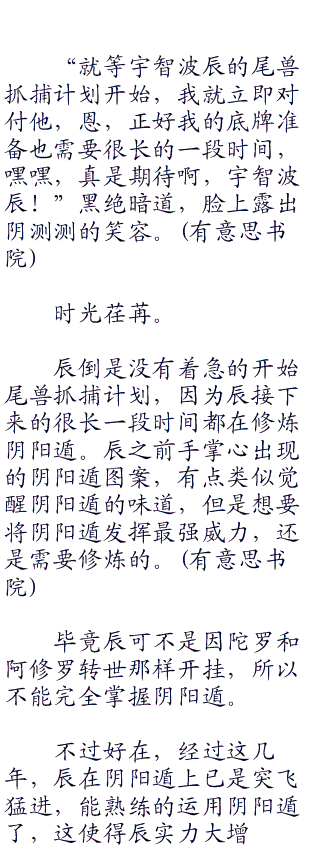 “就等宇智波辰的尾兽
抓捕计划开始，我就立即对
付他，恩，正好我的底牌准
备也需要很长的一段时间，
嘿嘿，真是期待啊，宇智波
辰！”黑绝暗道，脸上露出
阴测测的笑容。(有意思书
院)
时光荏苒。
辰倒是没有着急的开始
尾兽抓捕计划，因为辰接下
来的很长一段时间都在修炼
阴阳遁。辰之前手掌心出现
的阴阳遁图案，有点类似觉
醒阴阳遁的味道，但是想要
将阴阳遁发挥最强威力，还
是需要修炼的。(有意思书
院)
毕竟辰可不是因陀罗和
阿修罗转世那样开挂，所以
不能完全掌握阴阳遁。
不过好在，经过这几
年，辰在阴阳遁上已是突飞
猛进，能熟练的运用阴阳遁
了，这使得辰实力大增